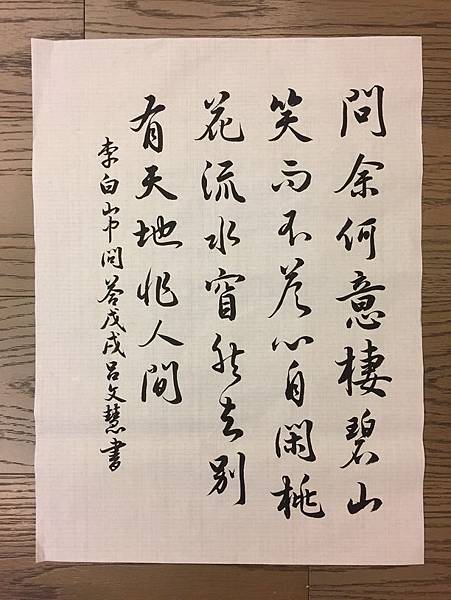 問余何意棲碧山
笑而不答心自閑桃
花流水窅然去別
有天地非人間
李白山中問答戊戌呂文慧書